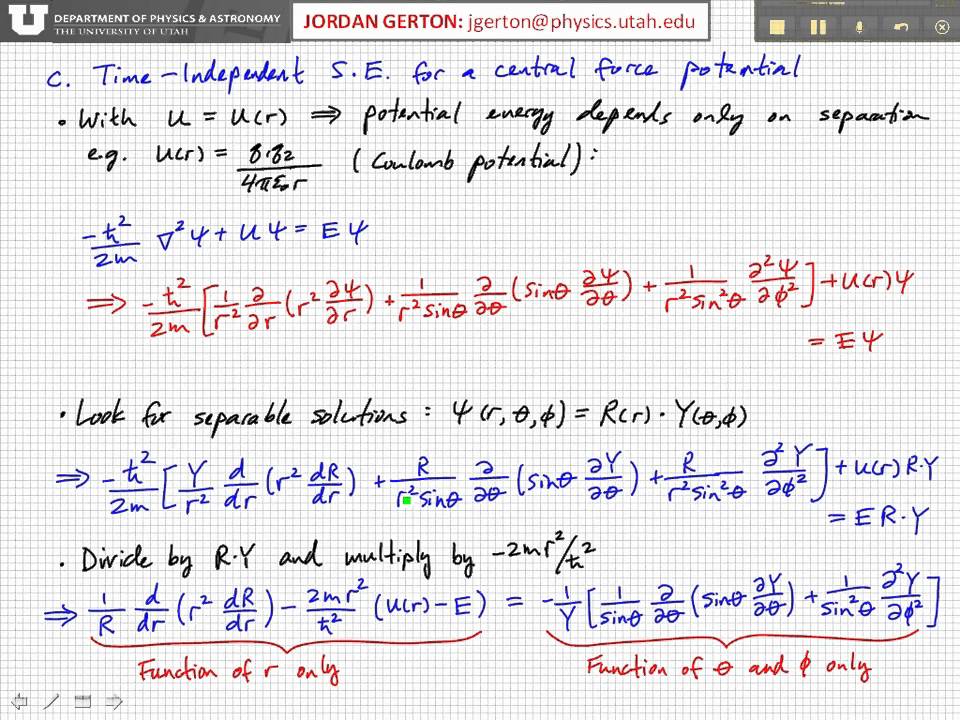 U DEPARTMENT OF PHYSICS & ASTRONOMY
THE UNIVERSITY OF UTAH
JORDAN GERTON: jgerton@physics.utah.edu
C. Time-Independent S.E. for a central force potential
• With U = U(r) ⟹ potential energy depends only on separation
e.g. U(r) = q₁q₂/4πε₀r (Coulomb potential):
-ħ²/2m ∇²Ψ + UΨ = EΨ
⟹ -ħ²/2m [1/r² ∂/∂r (r² ∂Ψ/∂r) + 1/r² sinθ ∂/∂θ (sinθ ∂Ψ/∂θ) + 1/r² sin²θ ∂²Ψ/∂ϕ²] + U(r)Ψ
= EΨ
• Look for separable solutions: Ψ(r,θ,ϕ) = R(r)·Y(θ,ϕ)
⟹ -ħ²/2m [Y/r² d/dr (r² dR/dr) + R/r² sinθ ∂/∂θ (sinθ ∂Y/∂θ) + R/r² sin²θ ∂²Y/∂ϕ²] + U(r)R·Y
= E R·Y
• Divide by R·Y and multiply by -2mr²/ħ²
⟹ 1/R d/dr (r² dR/dr) - 2mr²/ħ² (U(r)-E) = -1/Y [1/sinθ ∂/∂θ (sinθ ∂Y/∂θ) + 1/sin²θ ∂²Y/∂ϕ²]
Function of r only
Function of θ and ϕ only